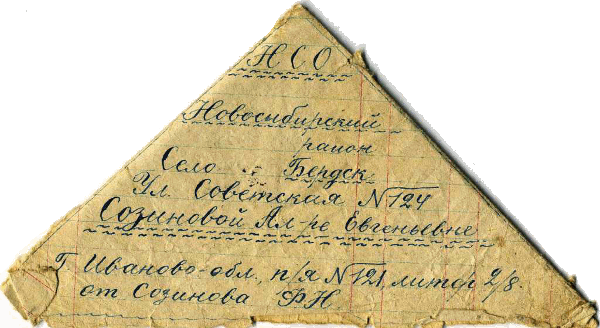 НСО
Новосибирский
район
Село Бердск
Ул Советская №124
Созиновой Ал-ре Евгеньевне
Г. Иваново-обл., п/я №121, литер 2/8.
от Созинова ФН